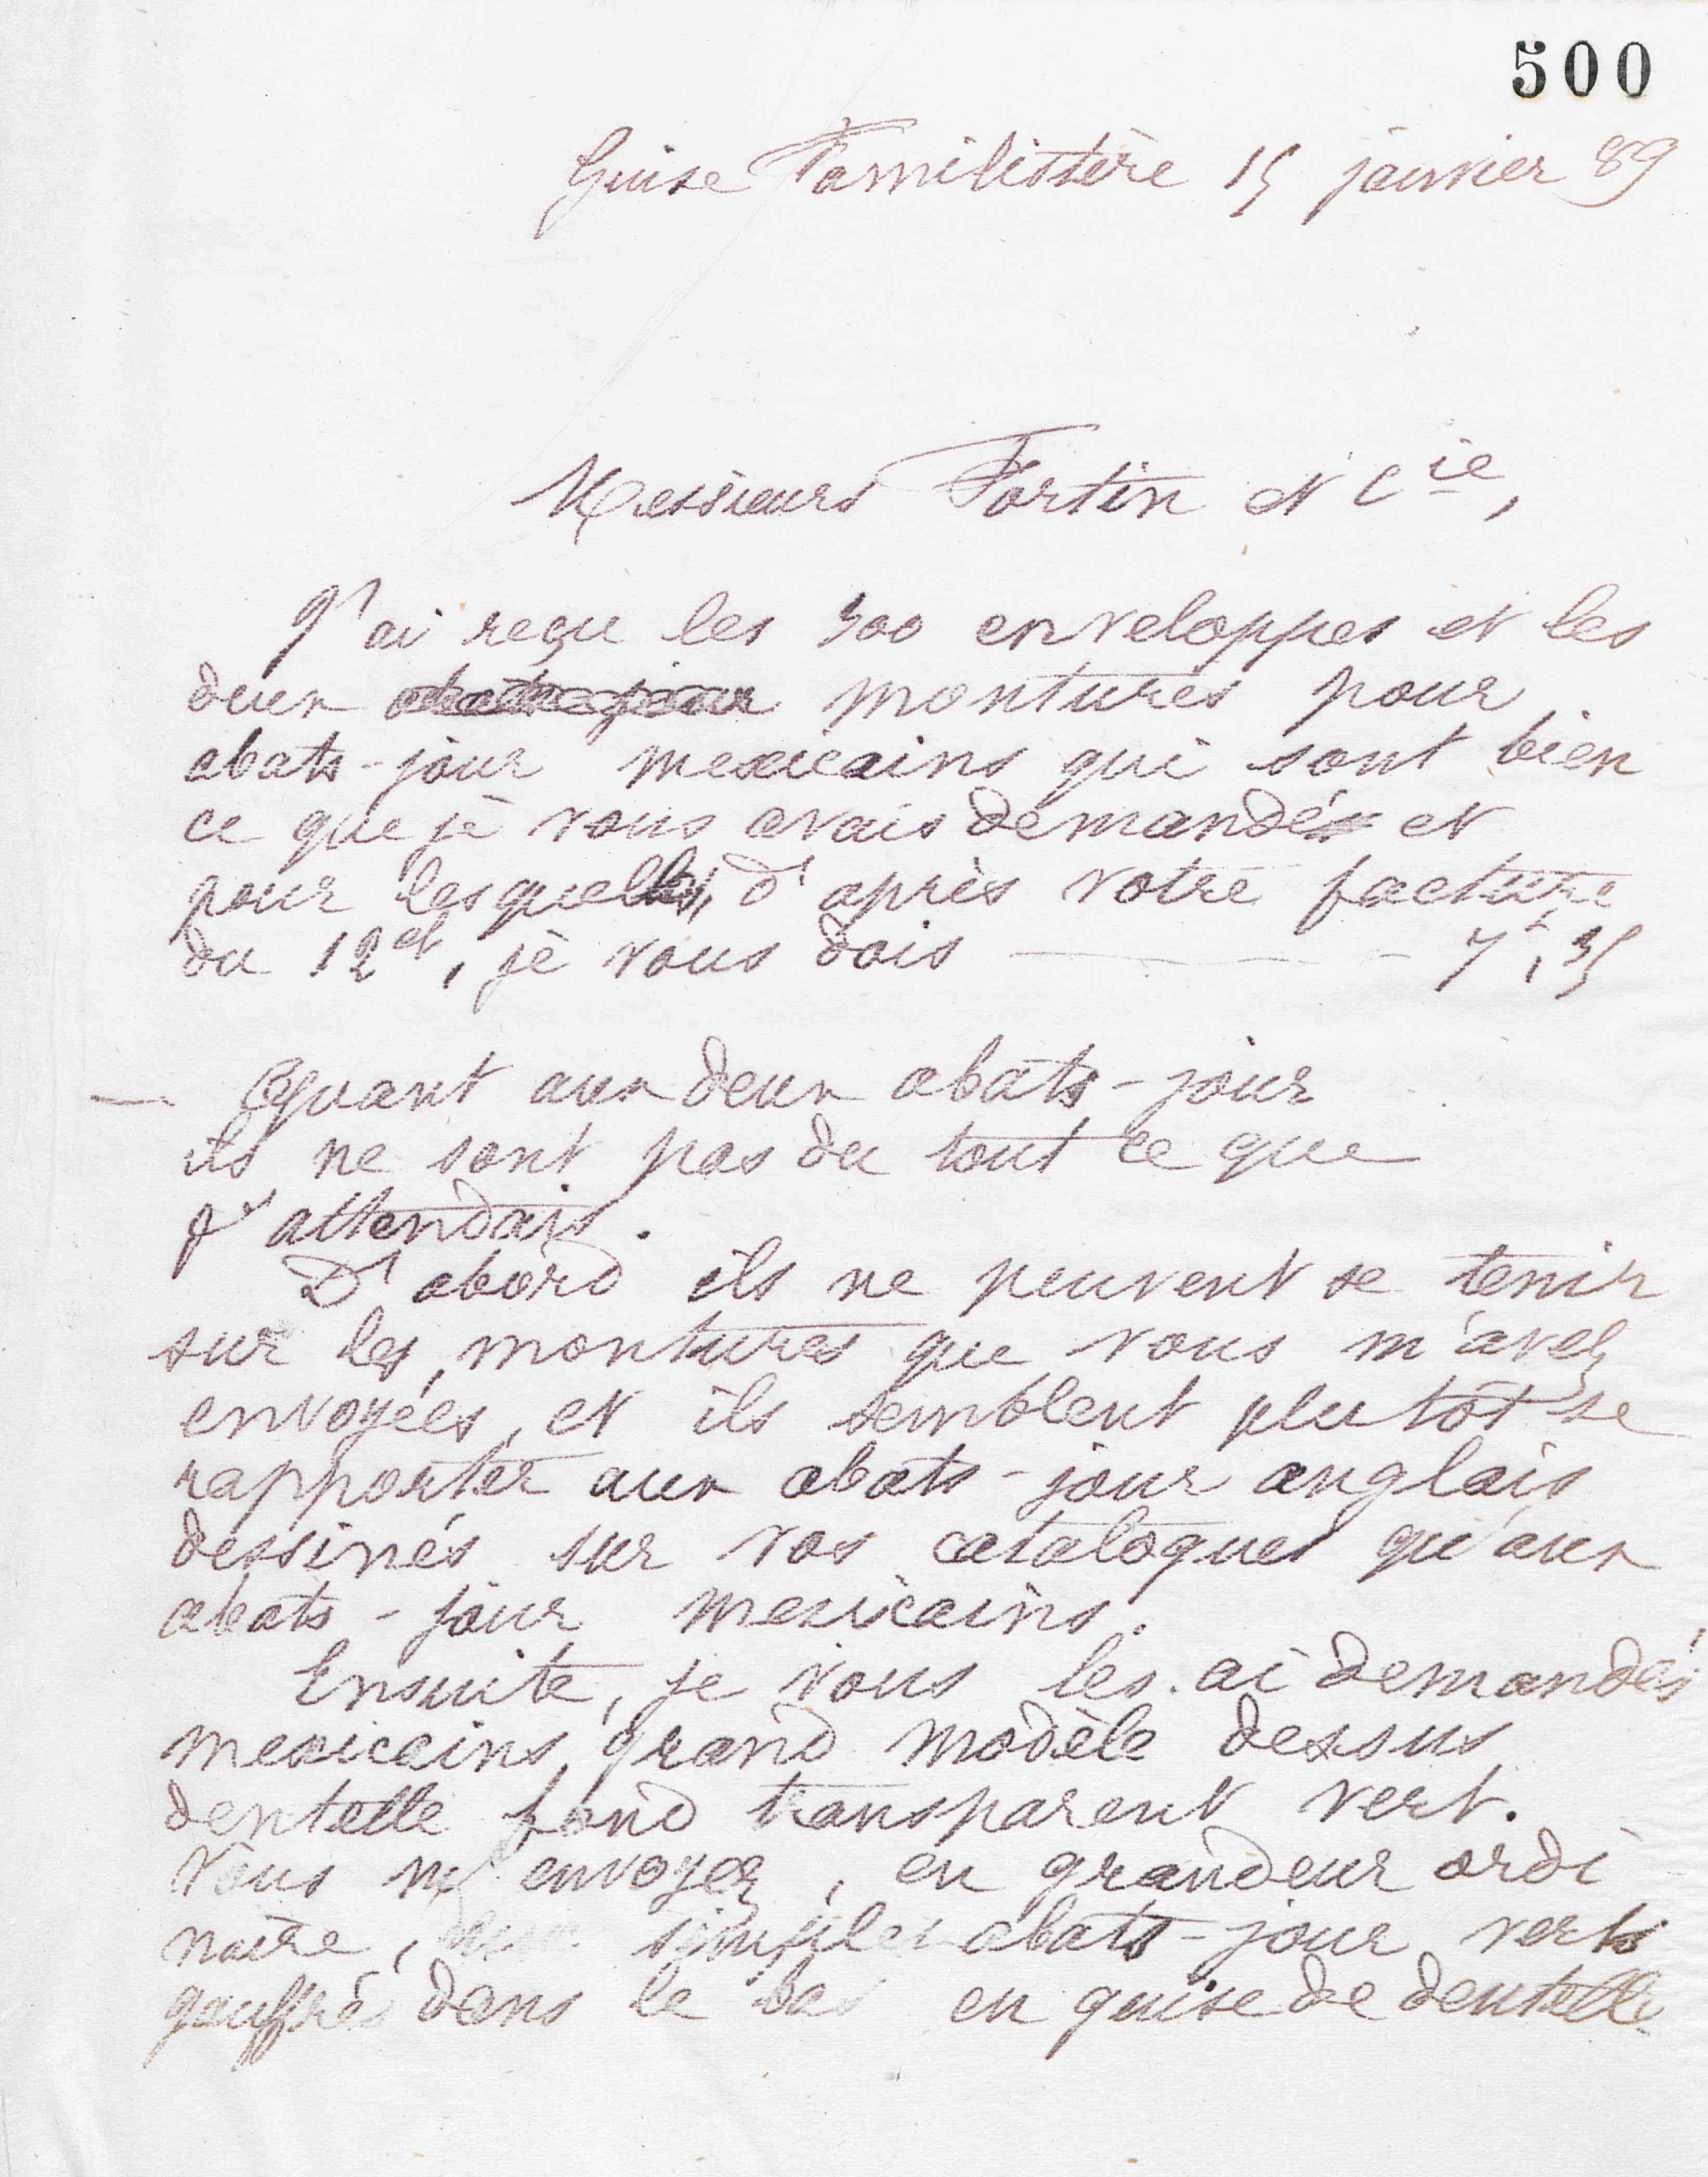 500
Guise Familistère 15 janvier 89
Messieurs Fortin et Cie,
J'ai reçu les 500 enveloppes et les
deux montures pour
abats-jour mexicains qui sont bien
ce que je vous avais demandé et
pour lesquelles, d'après votre facture
du 12 ct, je vous dois — 7f,35
— Quant aux deux abats-jour
ils ne sont pas du tout ce que
j'attendais.
D'abord ils ne peuvent se tenir
sur les montures que vous m'avez
envoyées, et ils semblent plutôt se
rapporter aux abats-jour anglais
dessinés sur vos catalogues qu'aux
abats-jour mexicains.
Ensuite, je vous les ai demandés
mexicains, grand modèle dessus
dentelle fond transparent vert.
Vous m'envoyez, en grandeur ordi
naire, simples abats-jour verts
gauffrés dans le bas en guise de dentelle